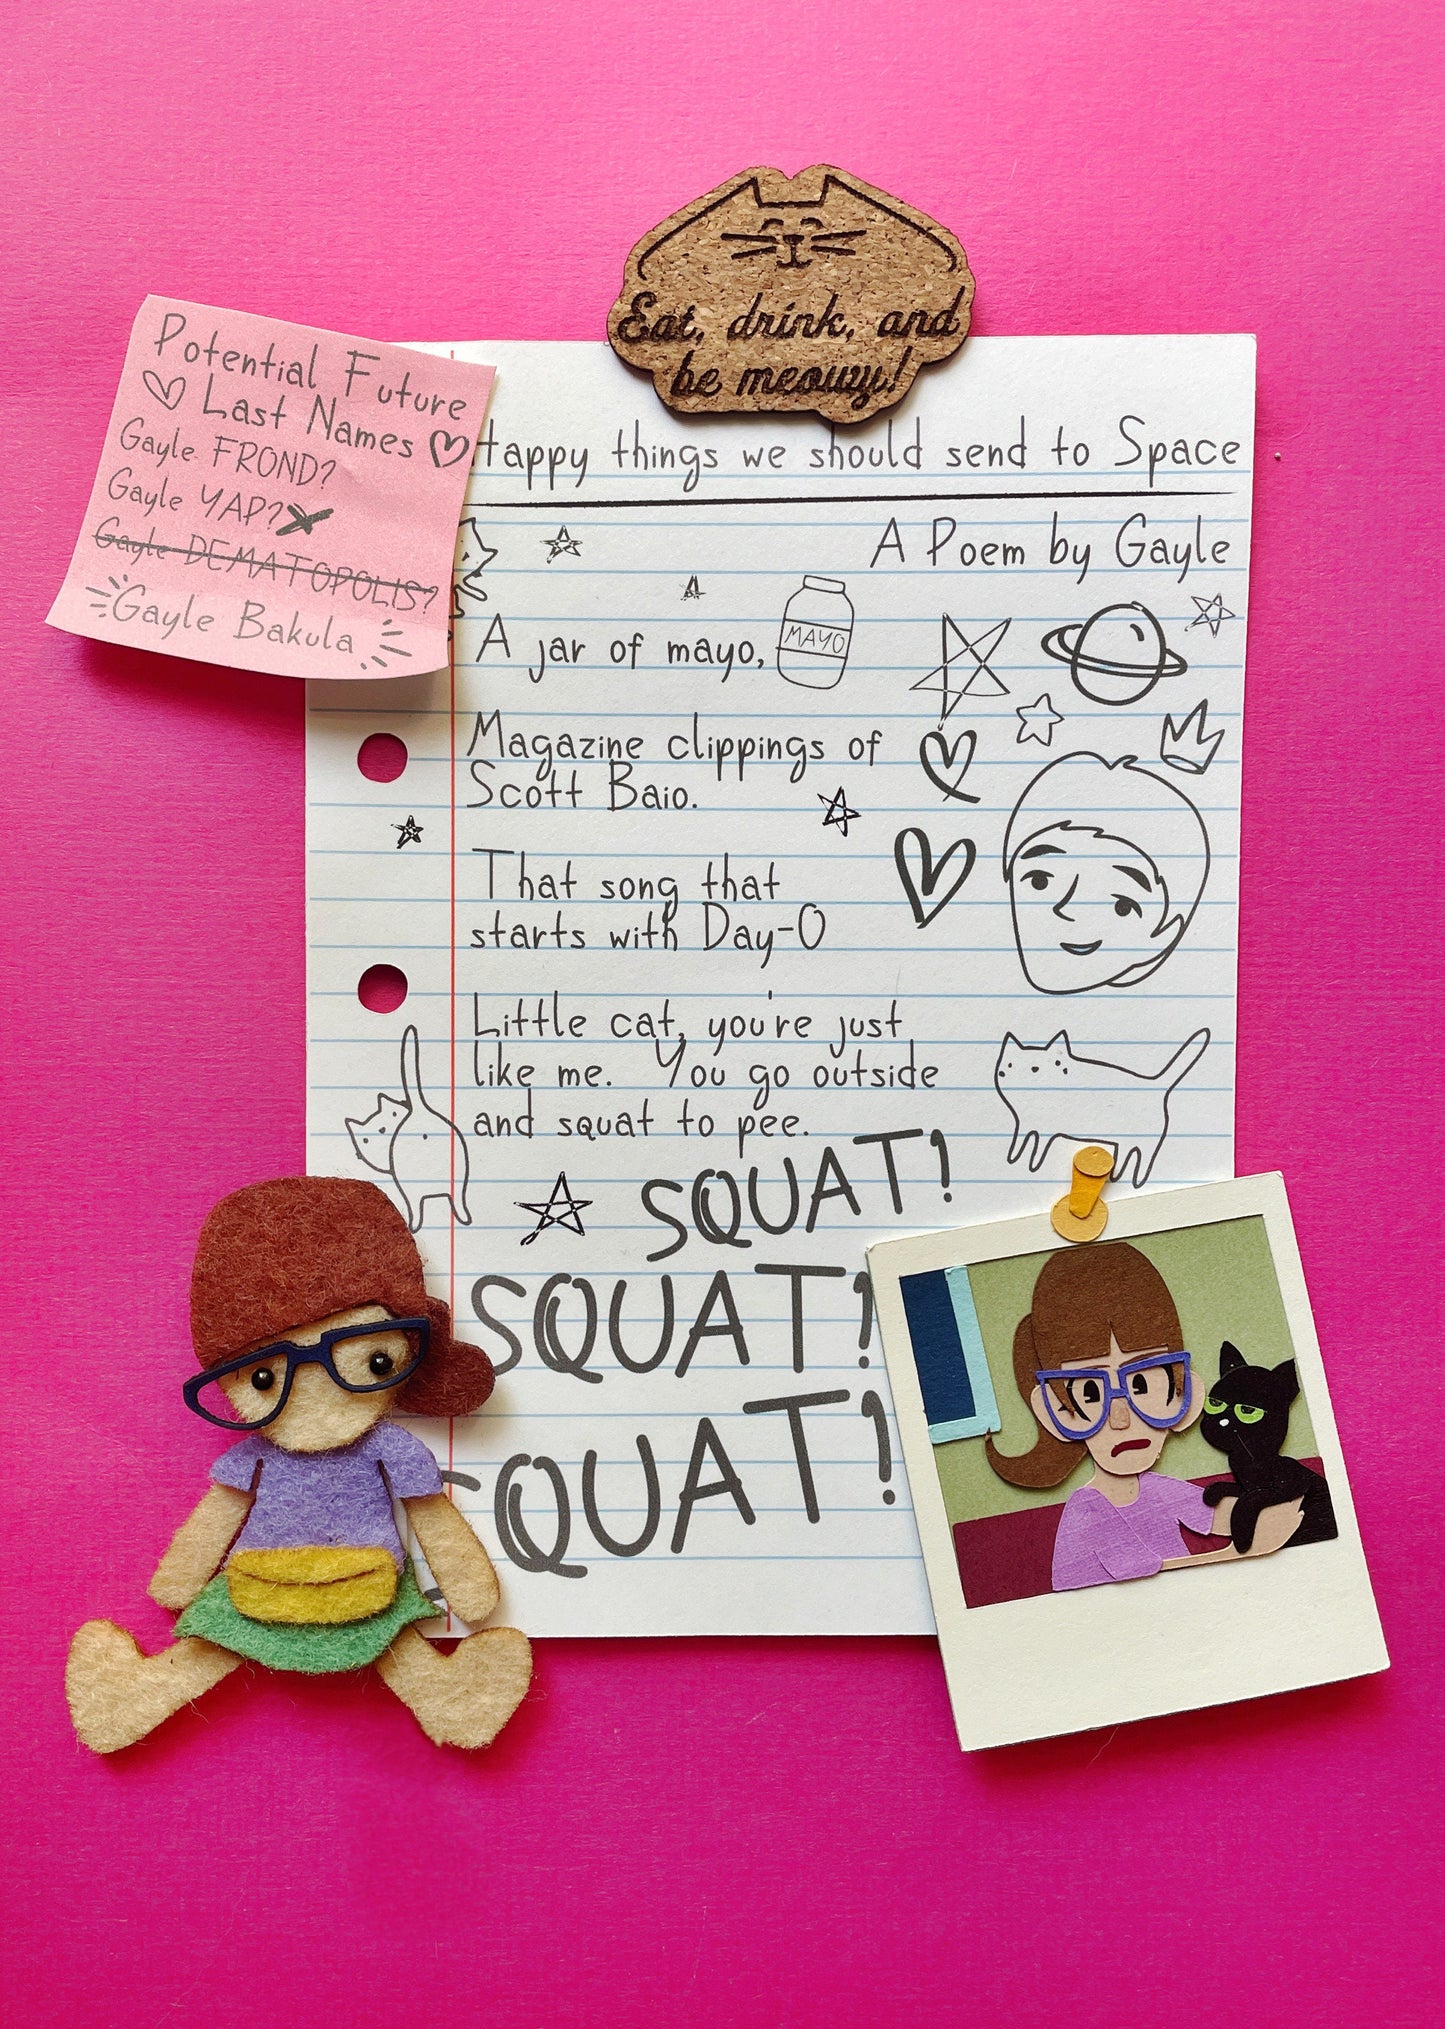 Eat, drink, and
be meowy!
Potential Future
Last Names
Gayle FROND?
Gayle YAP?
Gayle DEMATOPOLIS?
Gayle Bakula
Happy things we should send to Space
A Poem by Gayle
A jar of mayo,
MAYO
Magazine clippings of
Scott Baio.
That song that
starts with Day-O
Little cat, you're just
like me. You go outside
and squat to pee.
SQUAT!
SQUAT!
SQUAT!